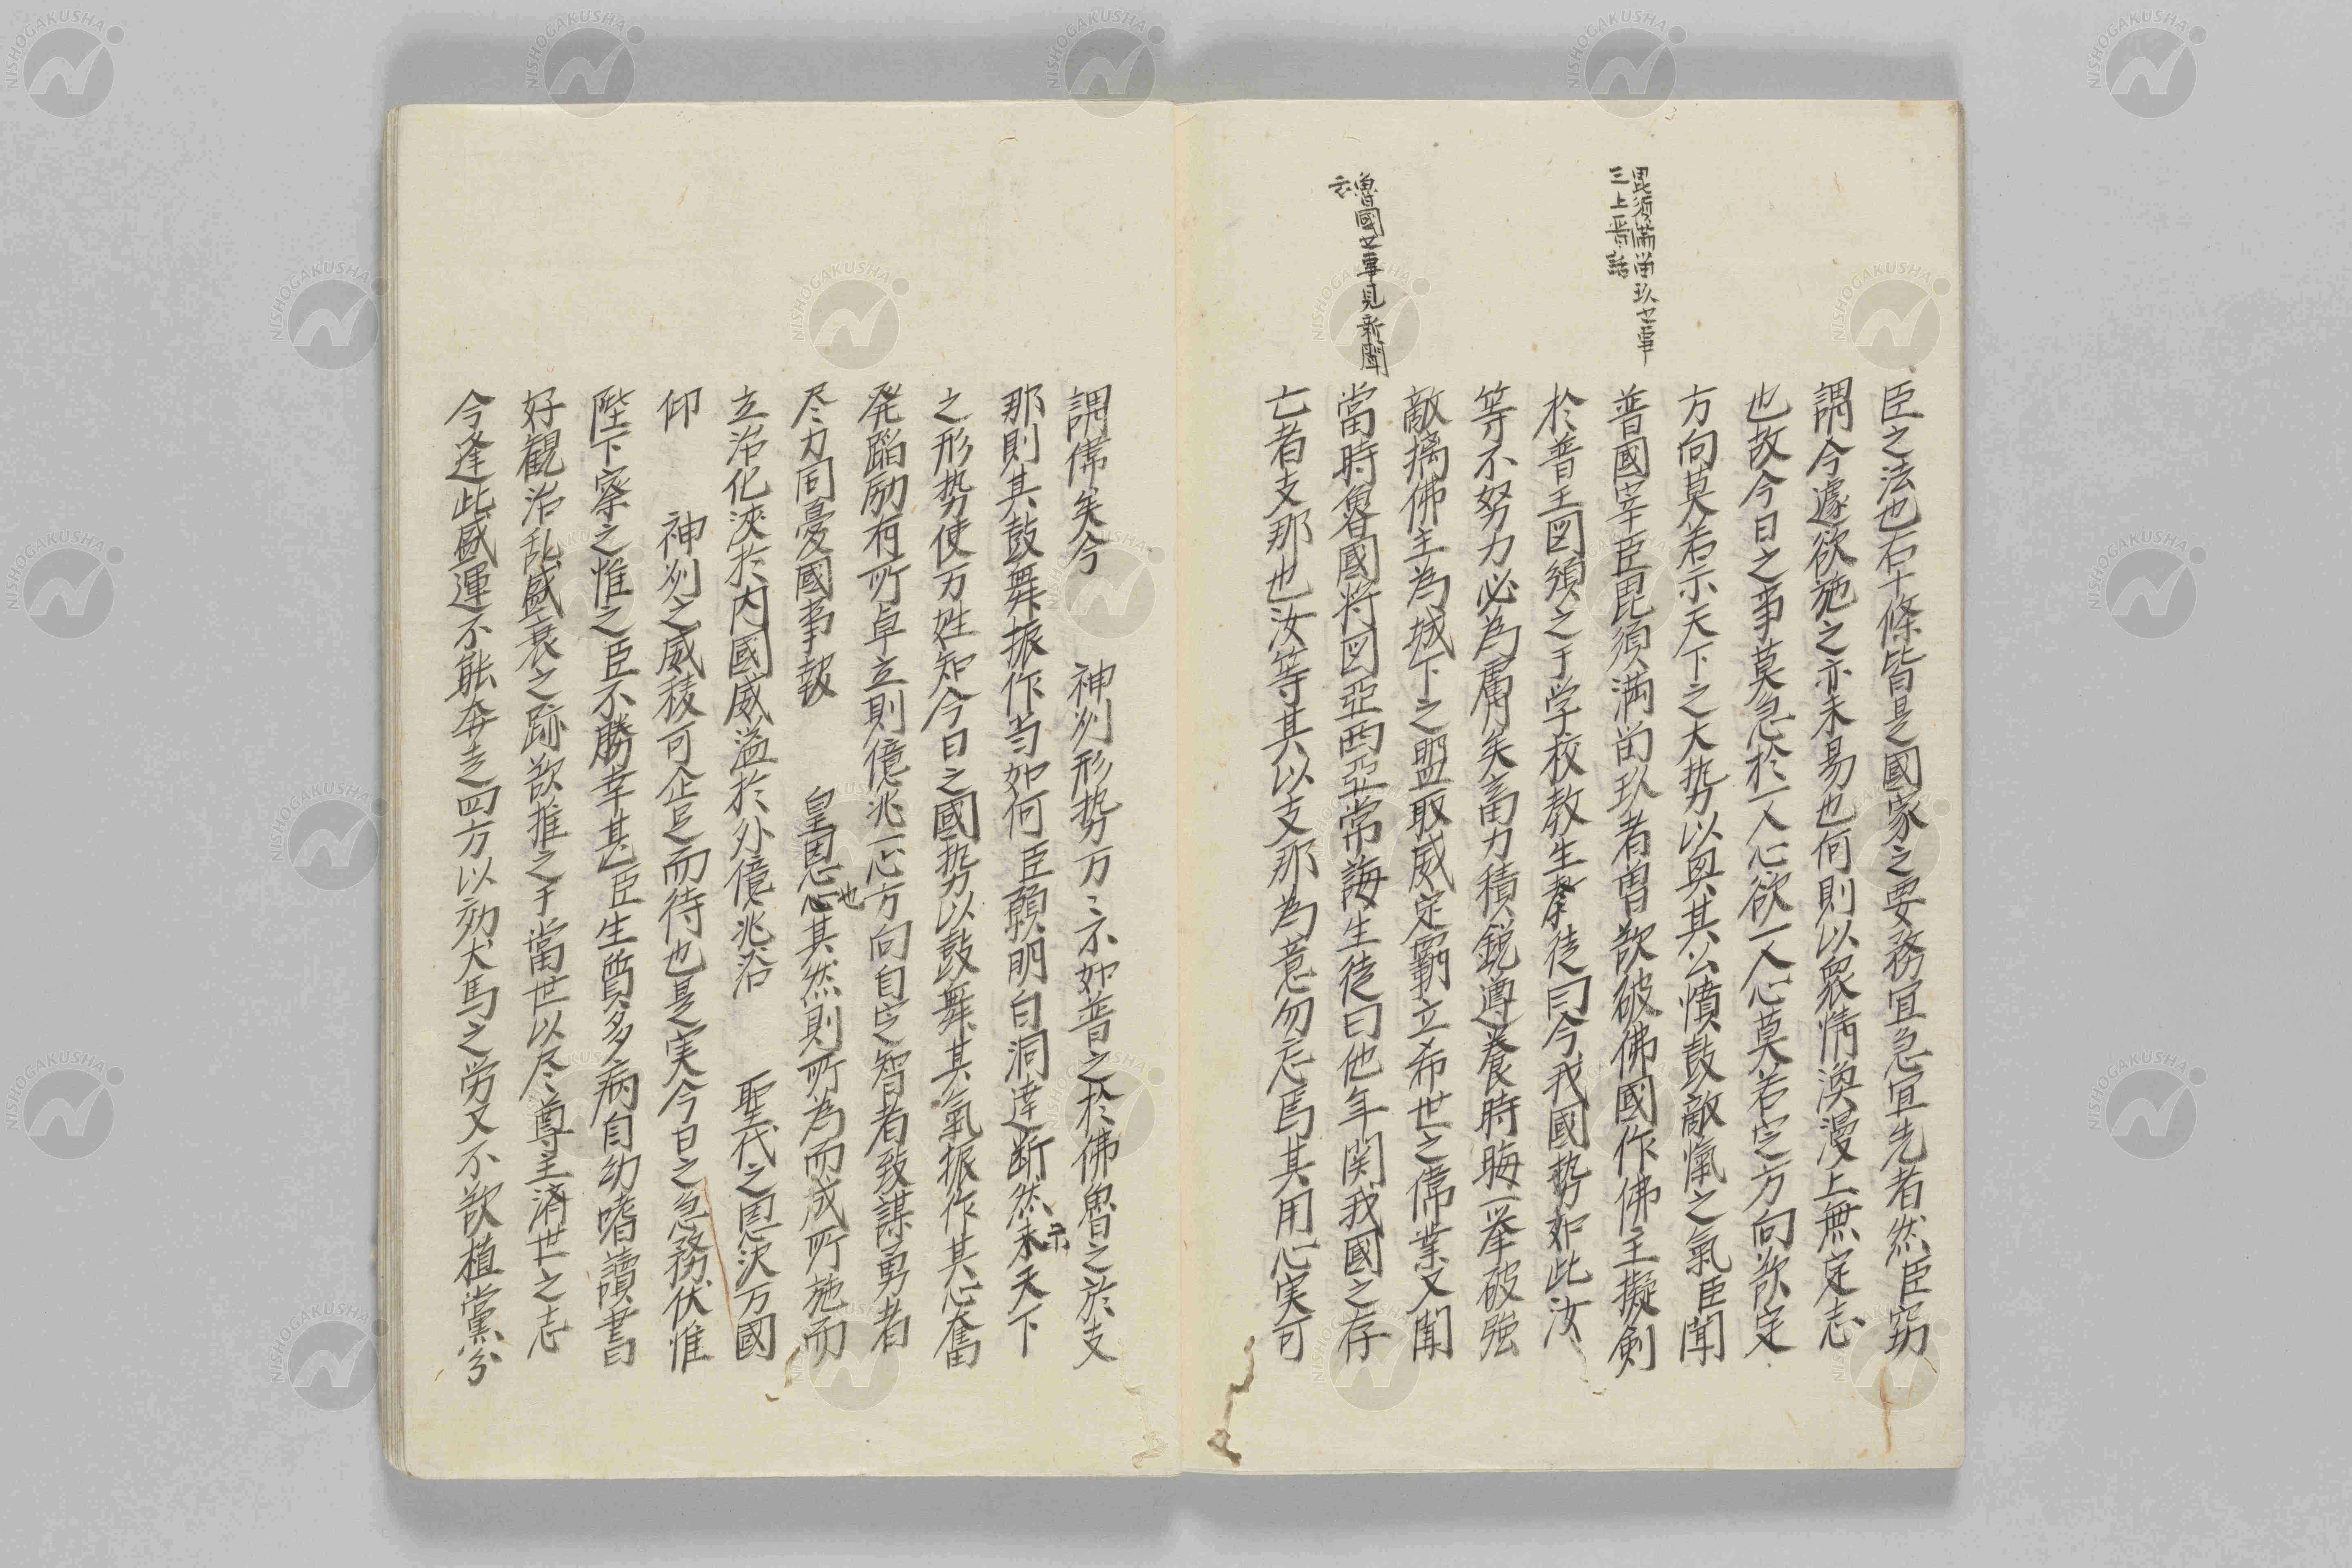 毘須満畄玖之事
三上晋話
魯國之事見新聞
云
臣之法也右十條皆是國家之要務宜急宜先者然臣窃
謂今遽欲施之亦未易也何則以衆情渙漫上無定志
也故今日之事莫急於一人心欲一人心莫若定方向欲定
方向莫若示天下之大勢以與其公憤鼓敵愾之氣臣聞
普國宰臣毘須満畄玖者曽欲破佛國作佛王擬剣
於普王図須之于学校教生徒曰今我國勢如此汝
等不努力必為虜矣畜力積鋭遵養時晦一挙破強
敵擒佛主為城下之盟取威定覇立希世之偉業又聞
當時魯國将図亞西亞常誨生徒曰他年関我國之存
亡者支那也汝等其以支那為意勿忘焉其用心実可
謂偉矣今　神州形勢万々不如普之於佛魯之於支
那則其鼓舞振作当如何臣願明白洞達断然示天下
之形勢使万姓知今日之國勢以鼓舞其氣振作其心奮
発蹈励有所卓立則億兆一心方向自定智者致謀勇者
尽力同憂國事報　皇恩也必其然則所為而成所施而
立治化浹於内國威溢於外億兆浴　聖代之恩沢万國
仰　神州之威稜可企足而待也是実今日之急務伏惟
陛下察之惟之臣不勝幸甚臣生質多病自幼嗜讀書
好観治乱盛衰之跡欲推之于當世以尽尊主済世之志
今逢此盛運不能奔走四方以効犬馬之労又不欲植黨分
NISHOGAKUSHA